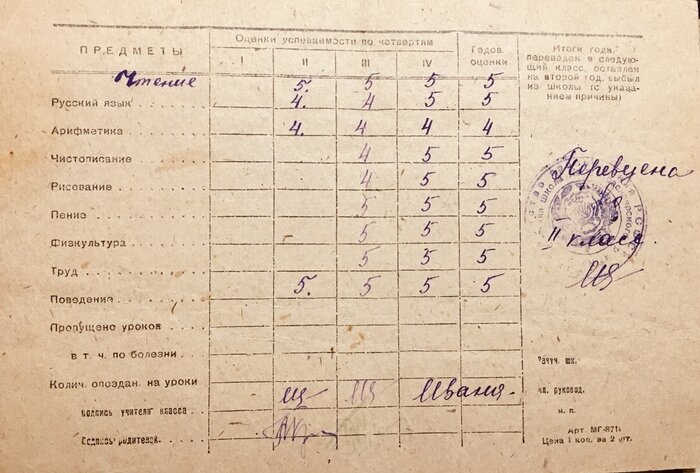 Оценки успеваемости по четвертям
ПРЕДМЕТЫ I II III IV Годов. оценки
Итоги года:
переведен в следую-
щий класс, оставлен
на второй год, выбыл
из школы (с указа-
нием причины)
Чтение 5. 5 5 5
Русский язык 4. 4 5 5
Арифметика 4. 4 4 4
Чистописание 4 5 5
Рисование 4 5 5
Пение 5 5 5
Физкультура 5 5 5
Труд 5 5 5
Поведение 5. 5 5 5
Переведена
II класс.
Пропущено уроков
в т. ч. по болезни
Колич. опоздан. на уроки
подпись учителя класса
Подпись родителей.
м. п.
Арт. МГ-871
Цена 1 коп. за 2 шт.